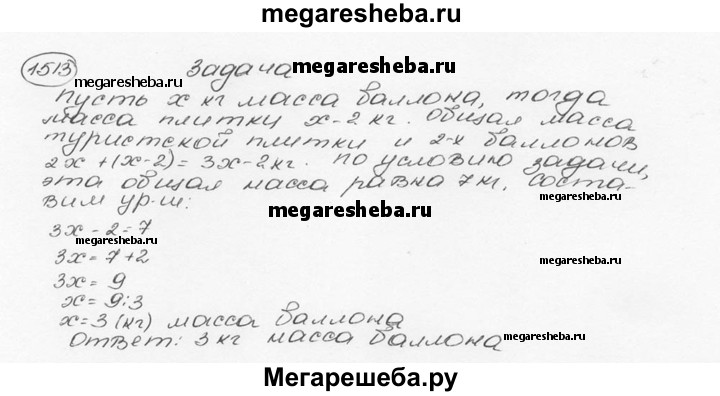 megaresheba.ru
1513 Задача
megaresheba.ru megaresheba.ru
Пусть x кг масса баллона, тогда
масса плитки x-2 кг. Общая масса
туристской плитки и 2-х баллонов
2x+(x-2)=3x-2кг. По условию задачи,
эта общая масса равна 7 кг. Соста-
вим ур-ш:
megaresheba.ru
3x-2=7
megaresheba.ru
3x=7+2
megaresheba.ru
3x=9
x=9:3
x=3(кг) масса баллона
Ответ: 3 кг масса баллона
megaresheba.ru
Мегарешеба.ру